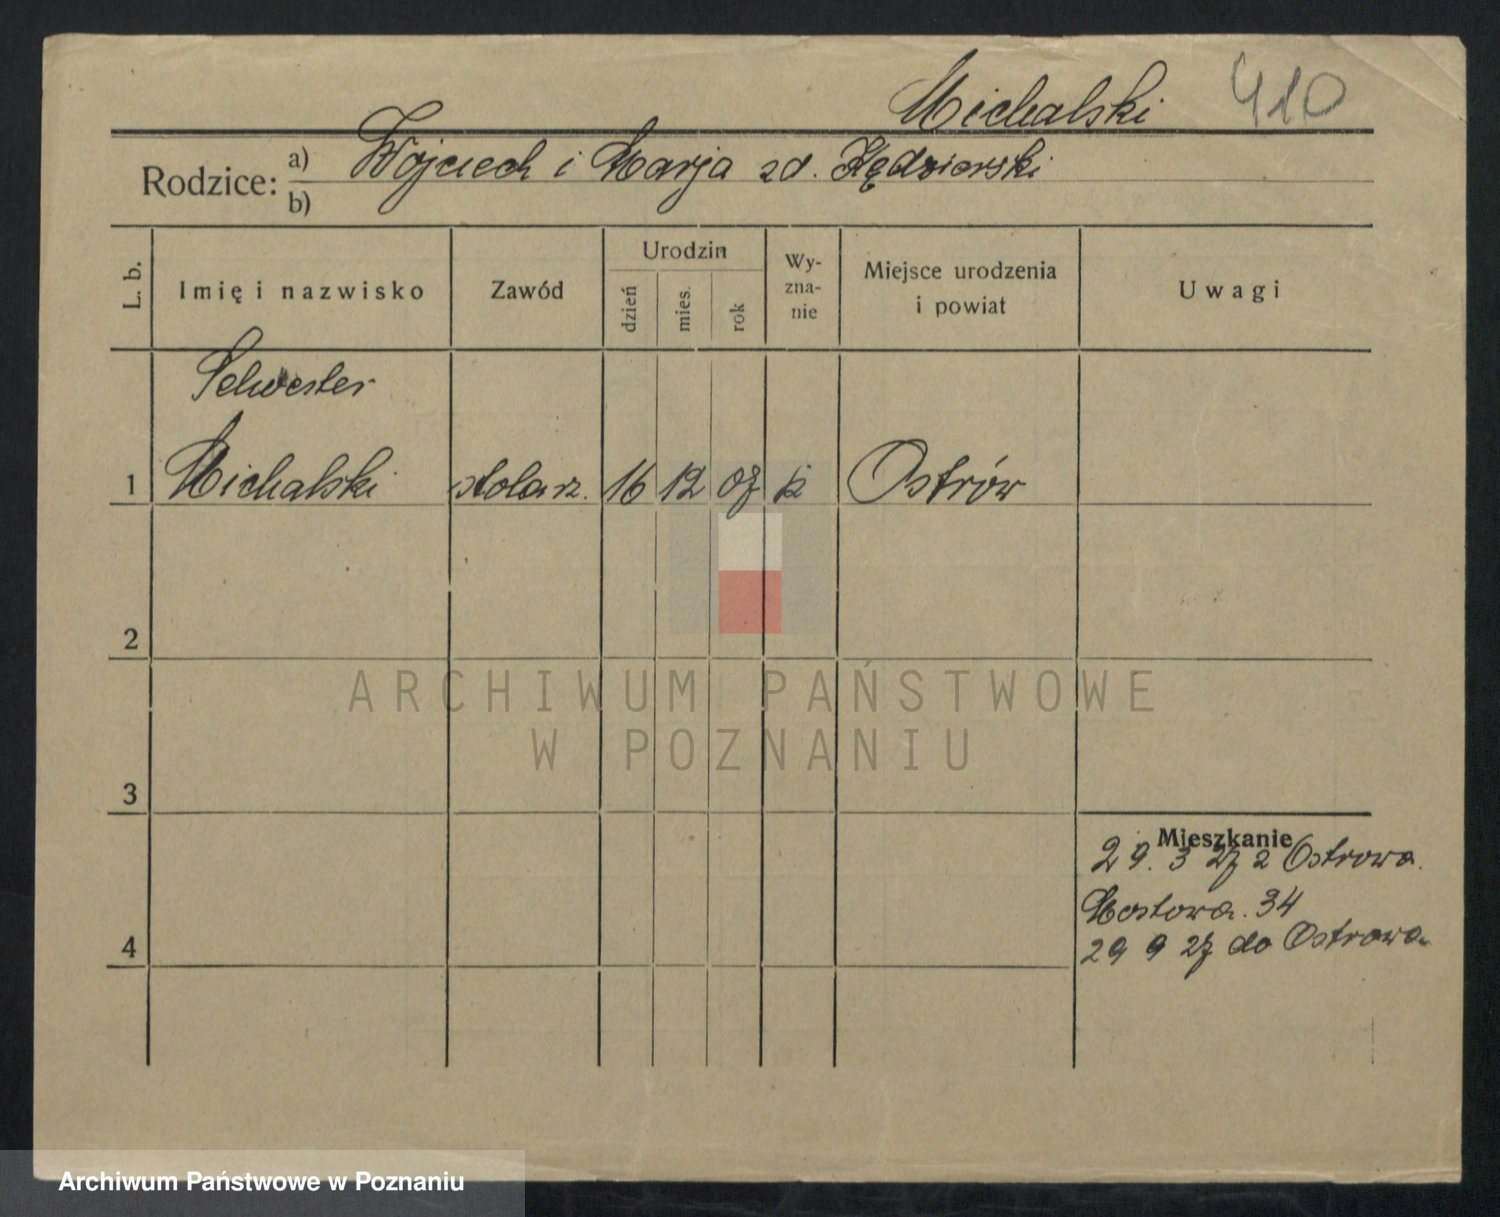 Michalski 410
Rodzice: a) Wojciech i Marja zd. Kędzierski
b)
L. b.
Imię i nazwisko
Zawód
Urodzin
dzień
mies.
rok
Wy-
zna-
nie
Miejsce urodzenia
i powiat
Uwagi
Selwester
1 Michalski stolarz. 16 12 07 k Ostrów
2
3
4
Mieszkanie
29. 3 27 z Ostrowa.
Mostowa. 34
29 9 27 do Ostrowa.
ARCHIWUM PAŃSTWOWE
W POZNANIU
Archiwum Państwowe w Poznaniu